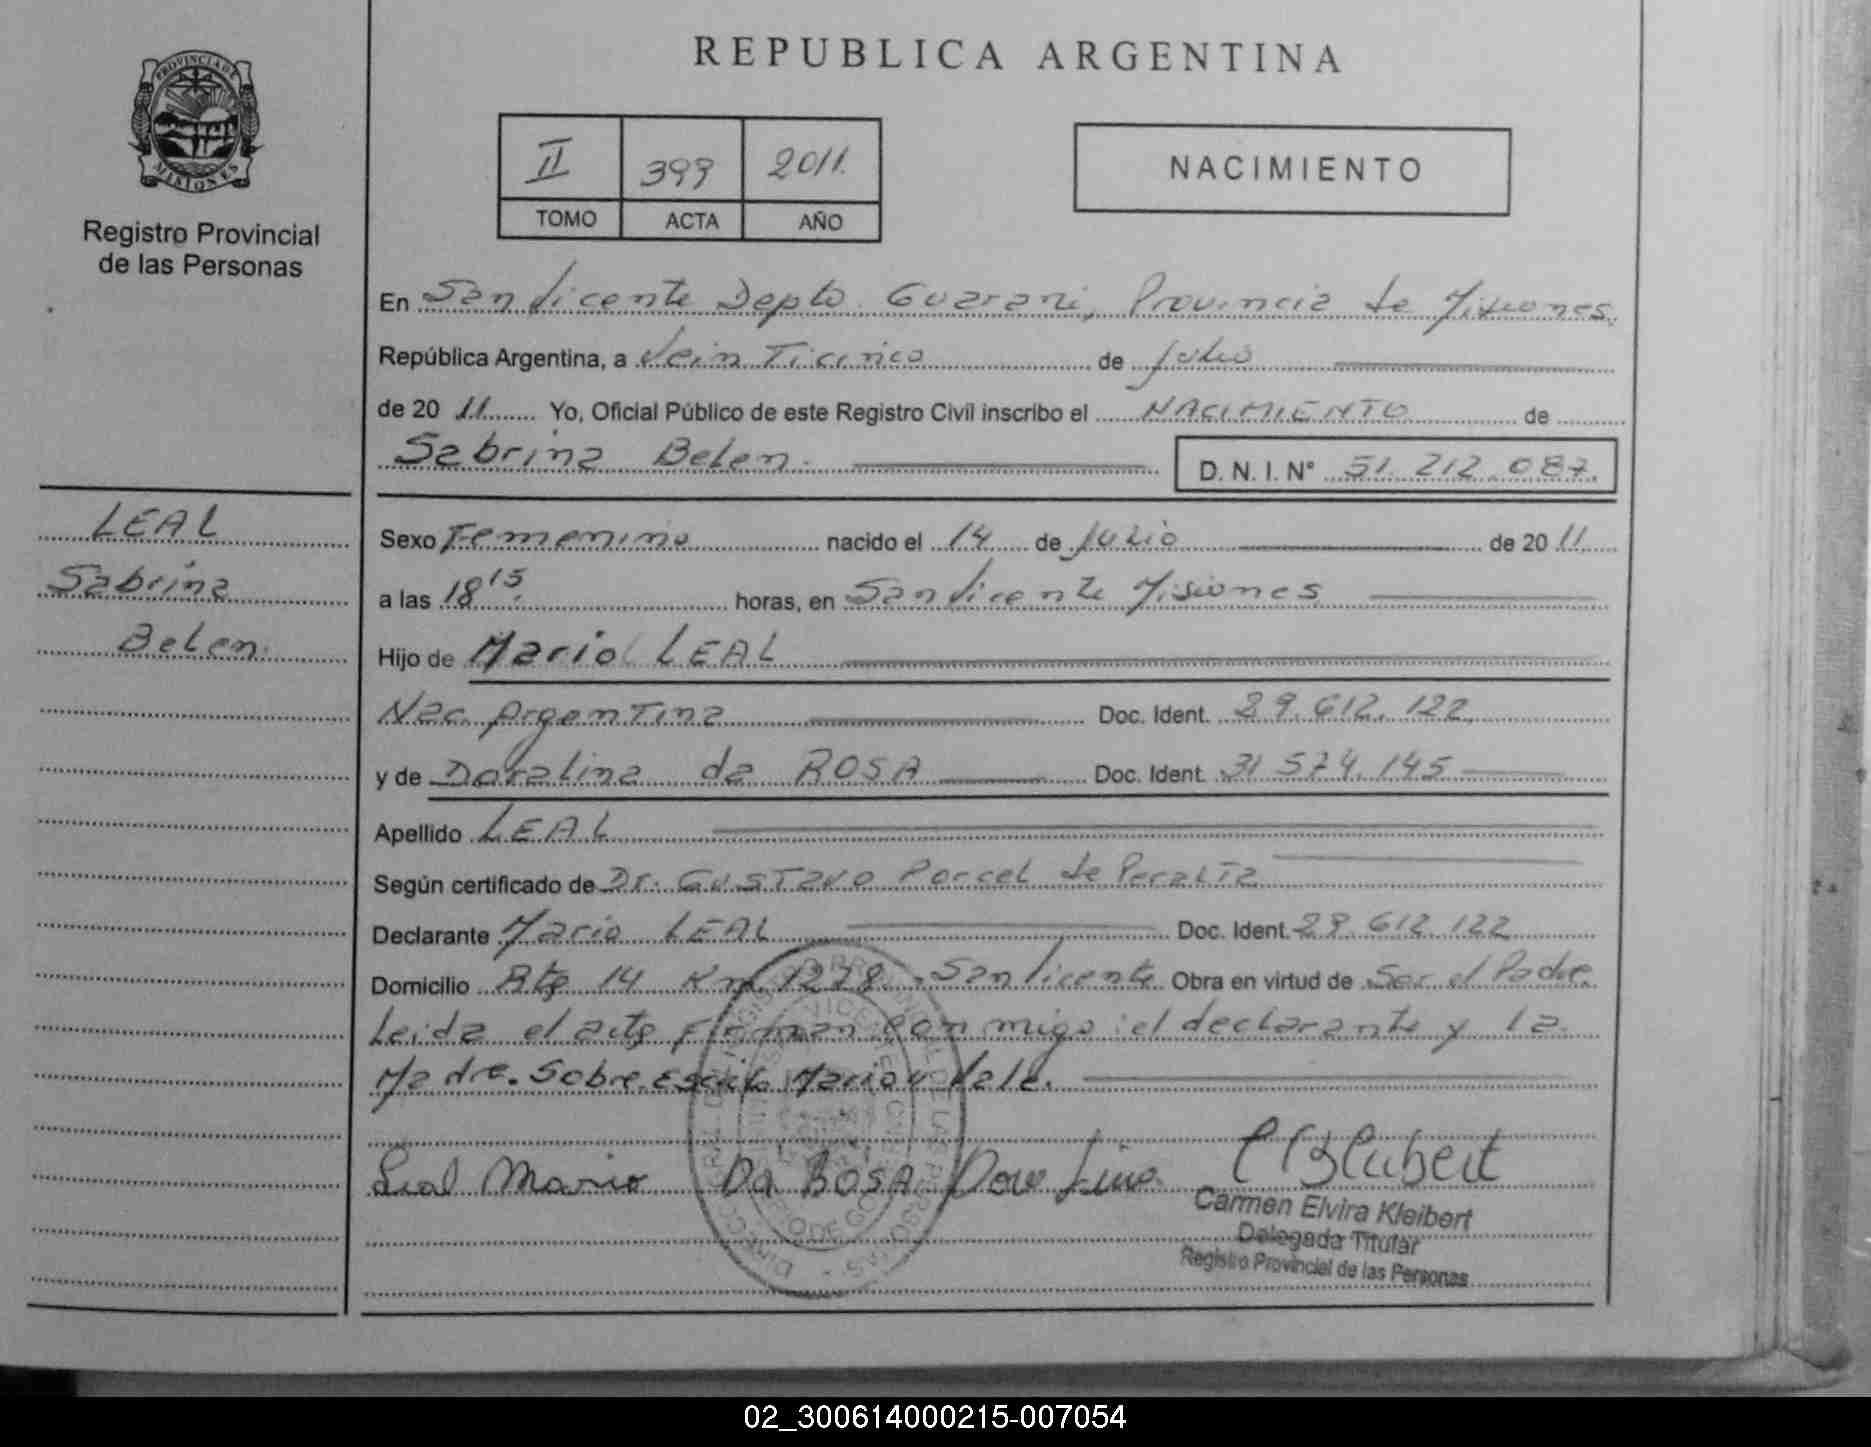 REPUBLICA ARGENTINA
PROVINCIA DE
MISIONES
Registro Provincial
de las Personas
II 399 2011.
TOMO ACTA AÑO
NACIMIENTO
En San Vicente Depto. Guarani, Provincia de Misiones.
República Argentina, a Vein Ticinco de Julio
de 20 11 Yo, Oficial Público de este Registro Civil inscribo el NACIMIENTO de
Sabrina Belen. D. N. I. N° 51.212.087.
LEAL
Sabrina
Belen.
Sexo Femenino nacido el 14 de Julio de 20 11
a las 18 15. horas, en San Vicente Misiones
Hijo de Mario LEAL
Nac. Argentina Doc. Ident. 29.612.122
y de Doralina da ROSA Doc. Ident. 31 574.145
Apellido LEAL
Según certificado de Dr. Gustavo Porcel de Peralta
Declarante Mario LEAL Doc. Ident. 29.612.122
Domicilio Rta 14 Km 1278. San Vicente Obra en virtud de Ser el Padre.
Leida el acta Firman con migo: el declarante y la
Madre. Sobre Escrib. Mario: Vale.
Leal Mario Da ROSA Dora Lina
Carmen Elvira Kleibert
Delegada Titular
Registro Provincial de las Personas
02_300614000215-007054